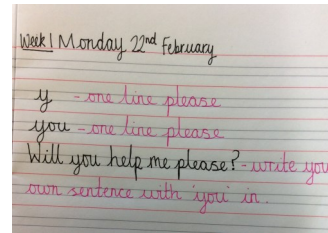 Week 1 Monday 22nd February
y - one line please
you - one line please
Will you help me please? - write you
own sentence with you in.